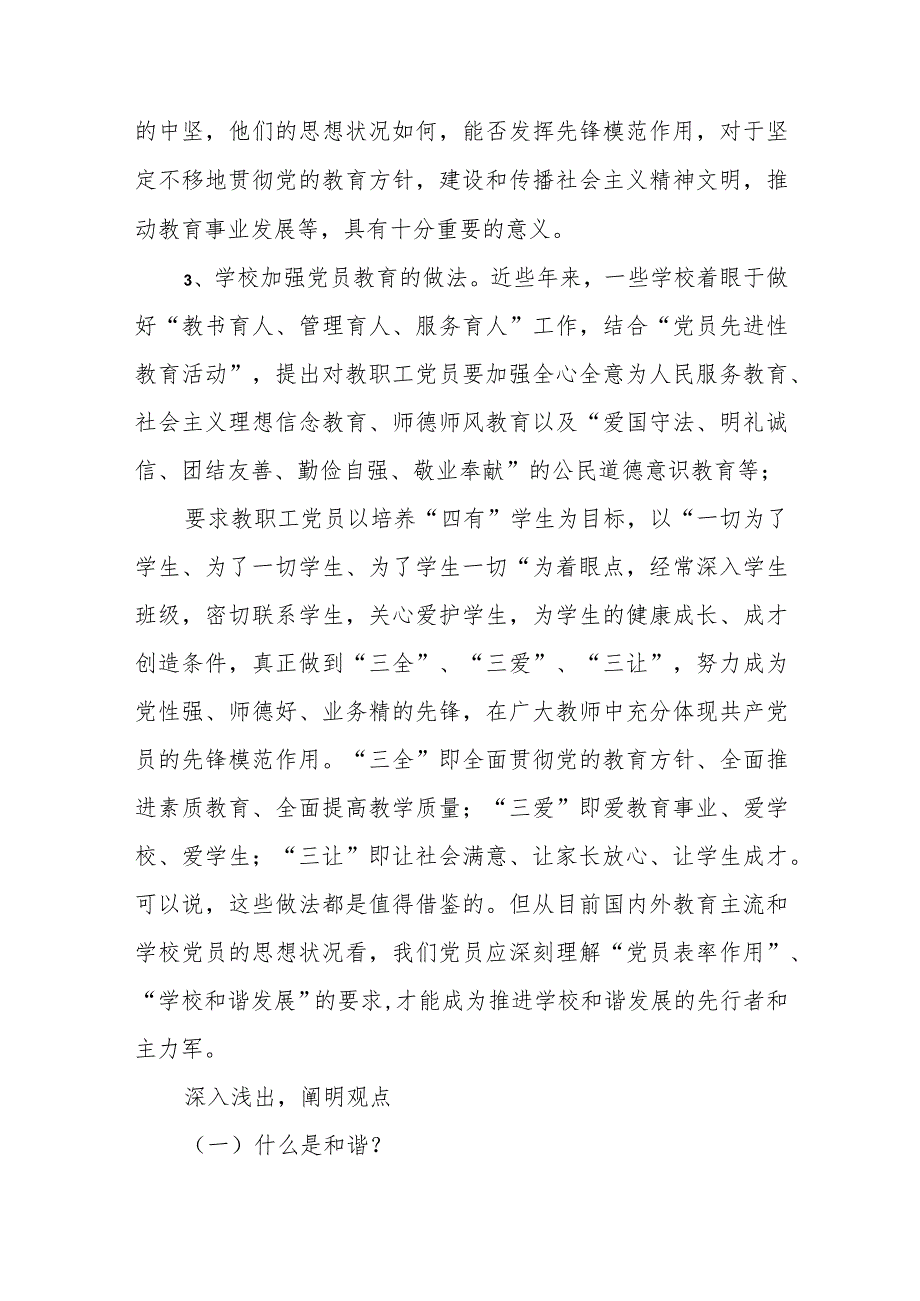 的中坚，他们的思想状况如何，能否发挥先锋模范作用，对于坚
定不移地贯彻党的教育方针，建设和传播社会主义精神文明，推
动教育事业发展等，具有十分重要的意义。
3、学校加强党员教育的做法。近些年来，一些学校着眼于做
好“教书育人、管理育人、服务育人”工作，结合“党员先进性
教育活动”，提出对教职工党员要加强全心全意为人民服务教育、
社会主义理想信念教育、师德师风教育以及“爱国守法、明礼诚
信、团结友善、勤俭自强、敬业奉献”的公民道德意识教育等；
要求教职工党员以培养“四有”学生为目标，以“一切为了
学生、为了一切学生、为了学生一切“为着眼点，经常深入学生
班级，密切联系学生，关心爱护学生，为学生的健康成长、成才
创造条件，真正做到“三全”、“三爱”、“三让”，努力成为
党性强、师德好、业务精的先锋，在广大教师中充分体现共产党
员的先锋模范作用。“三全”即全面贯彻党的教育方针、全面推
进素质教育、全面提高教学质量；“三爱”即爱教育事业、爱学
校、爱学生；“三让”即让社会满意、让家长放心、让学生成才。
可以说，这些做法都是值得借鉴的。但从目前国内外教育主流和
学校党员的思想状况看，我们党员应深刻理解“党员表率作用”、
“学校和谐发展”的要求,才能成为推进学校和谐发展的先行者和
主力军。
深入浅出，阐明观点
（一）什么是和谐？